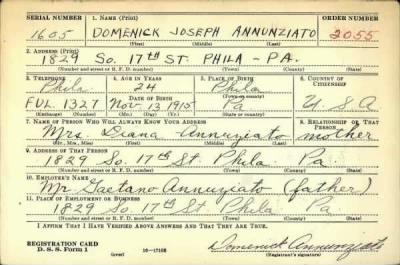 SERIAL NUMBER 1. NAME (Print) ORDER NUMBER
1605 DOMENICK JOSEPH ANNUNZIATO 2055
(First) (Middle) (Last)
2. ADDRESS (Print)
1829 So. 17th ST. PHILA - PA.
(Number and street or R. F. D. number) (Town) (County) (State)
3. TELEPHONE 4. AGE IN YEARS 5. PLACE OF BIRTH 6. COUNTRY OF CITIZENSHIP
Phila 24 Phila
DATE OF BIRTH (Town or county)
FUL 1327 Nov. 13 1915 Pa U.S.A
(Exchange) (Number) (Mo.) (Day) (Yr.) (State or country)
7. NAME OF PERSON WHO WILL ALWAYS KNOW YOUR ADDRESS 8. RELATIONSHIP OF THAT PERSON
Mrs. Diana Annuziato mother
(Mr., Mrs., Miss) (First) (Middle) (Last)
9. ADDRESS OF THAT PERSON
1829 So. 17th St Phila. Pa
(Number and street or R. F. D. number) (Town) (County) (State)
10. EMPLOYER'S NAME
Mr Gaetano Annuziato (father)
11. PLACE OF EMPLOYMENT OR BUSINESS
1829 So. 17th St Phila Pa
(Number and street or R. F. D. number) (Town) (County) (State)
I AFFIRM THAT I HAVE VERIFIED ABOVE ANSWERS AND THAT THEY ARE TRUE.
REGISTRATION CARD
D. S. S. Form 1 (over) 16-17105 Domenick Annunziato
(Registrant's signature)